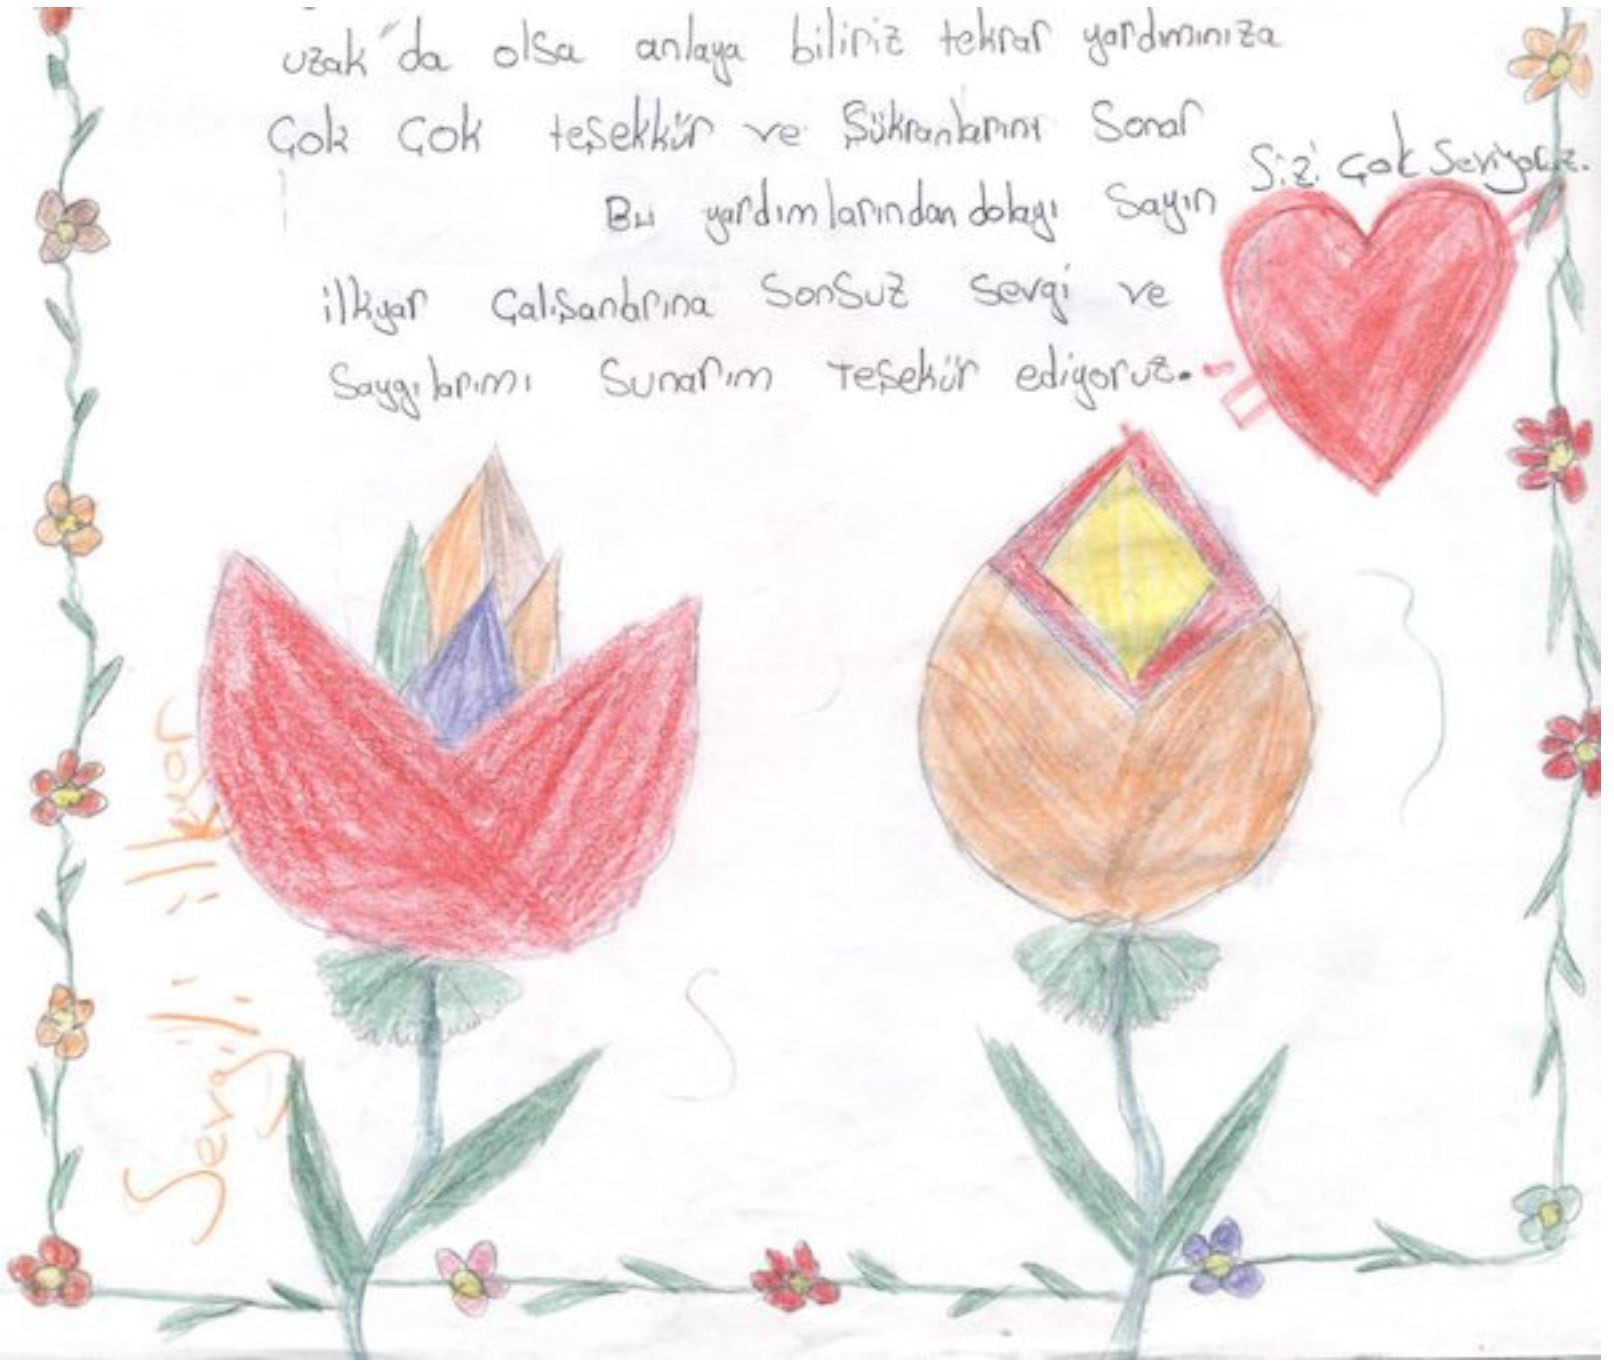 uzak"da olsa anlaya biliriz tekrar yardımınıza
Çok Çok teşekkür ve Şükranlarını Sonar
Siz'i çok Seviyoruz.
Bu yardımlarından dolayı Sayın
ilkyar Çalışanlarına Sonsuz Sevgi ve
Saygılarımı Sunarım Teşekür ediyoruz.
Sevgili ilkyar